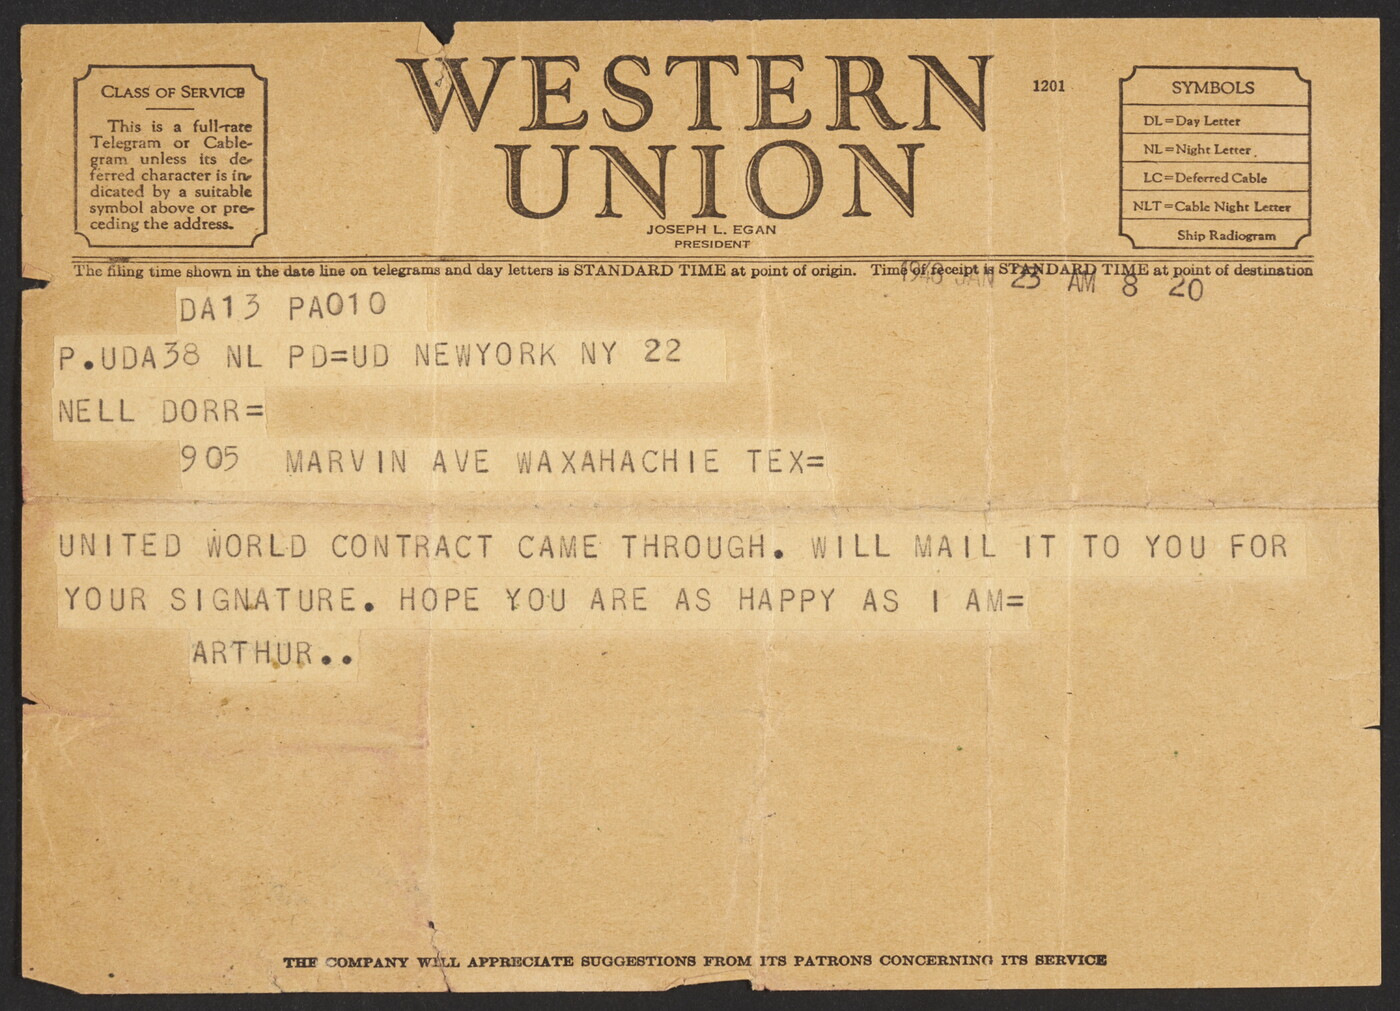 CLASS OF SERVICE
This is a full-rate
Telegram or Cable-
gram unless its de-
ferred character is in-
dicated by a suitable
symbol above or pre-
ceding the address.
WESTERN
UNION
1201
JOSEPH L. EGAN
PRESIDENT
SYMBOLS
DL=Day Letter
NL=Night Letter
LC=Deferred Cable
NLT=Cable Night Letter
Ship Radiogram
The filing time shown in the date line on telegrams and day letters is STANDARD TIME at point of origin. Time of receipt is STANDARD TIME at point of destination
JAN 23 AM 8 20
DA13 PA010
P.UDA38 NL PD=UD NEWYORK NY 22
NELL DORR=
905 MARVIN AVE WAXAHACHIE TEX=
UNITED WORLD CONTRACT CAME THROUGH. WILL MAIL IT TO YOU FOR
YOUR SIGNATURE. HOPE YOU ARE AS HAPPY AS I AM=
ARTHUR..
THE COMPANY WILL APPRECIATE SUGGESTIONS FROM ITS PATRONS CONCERNING ITS SERVICE